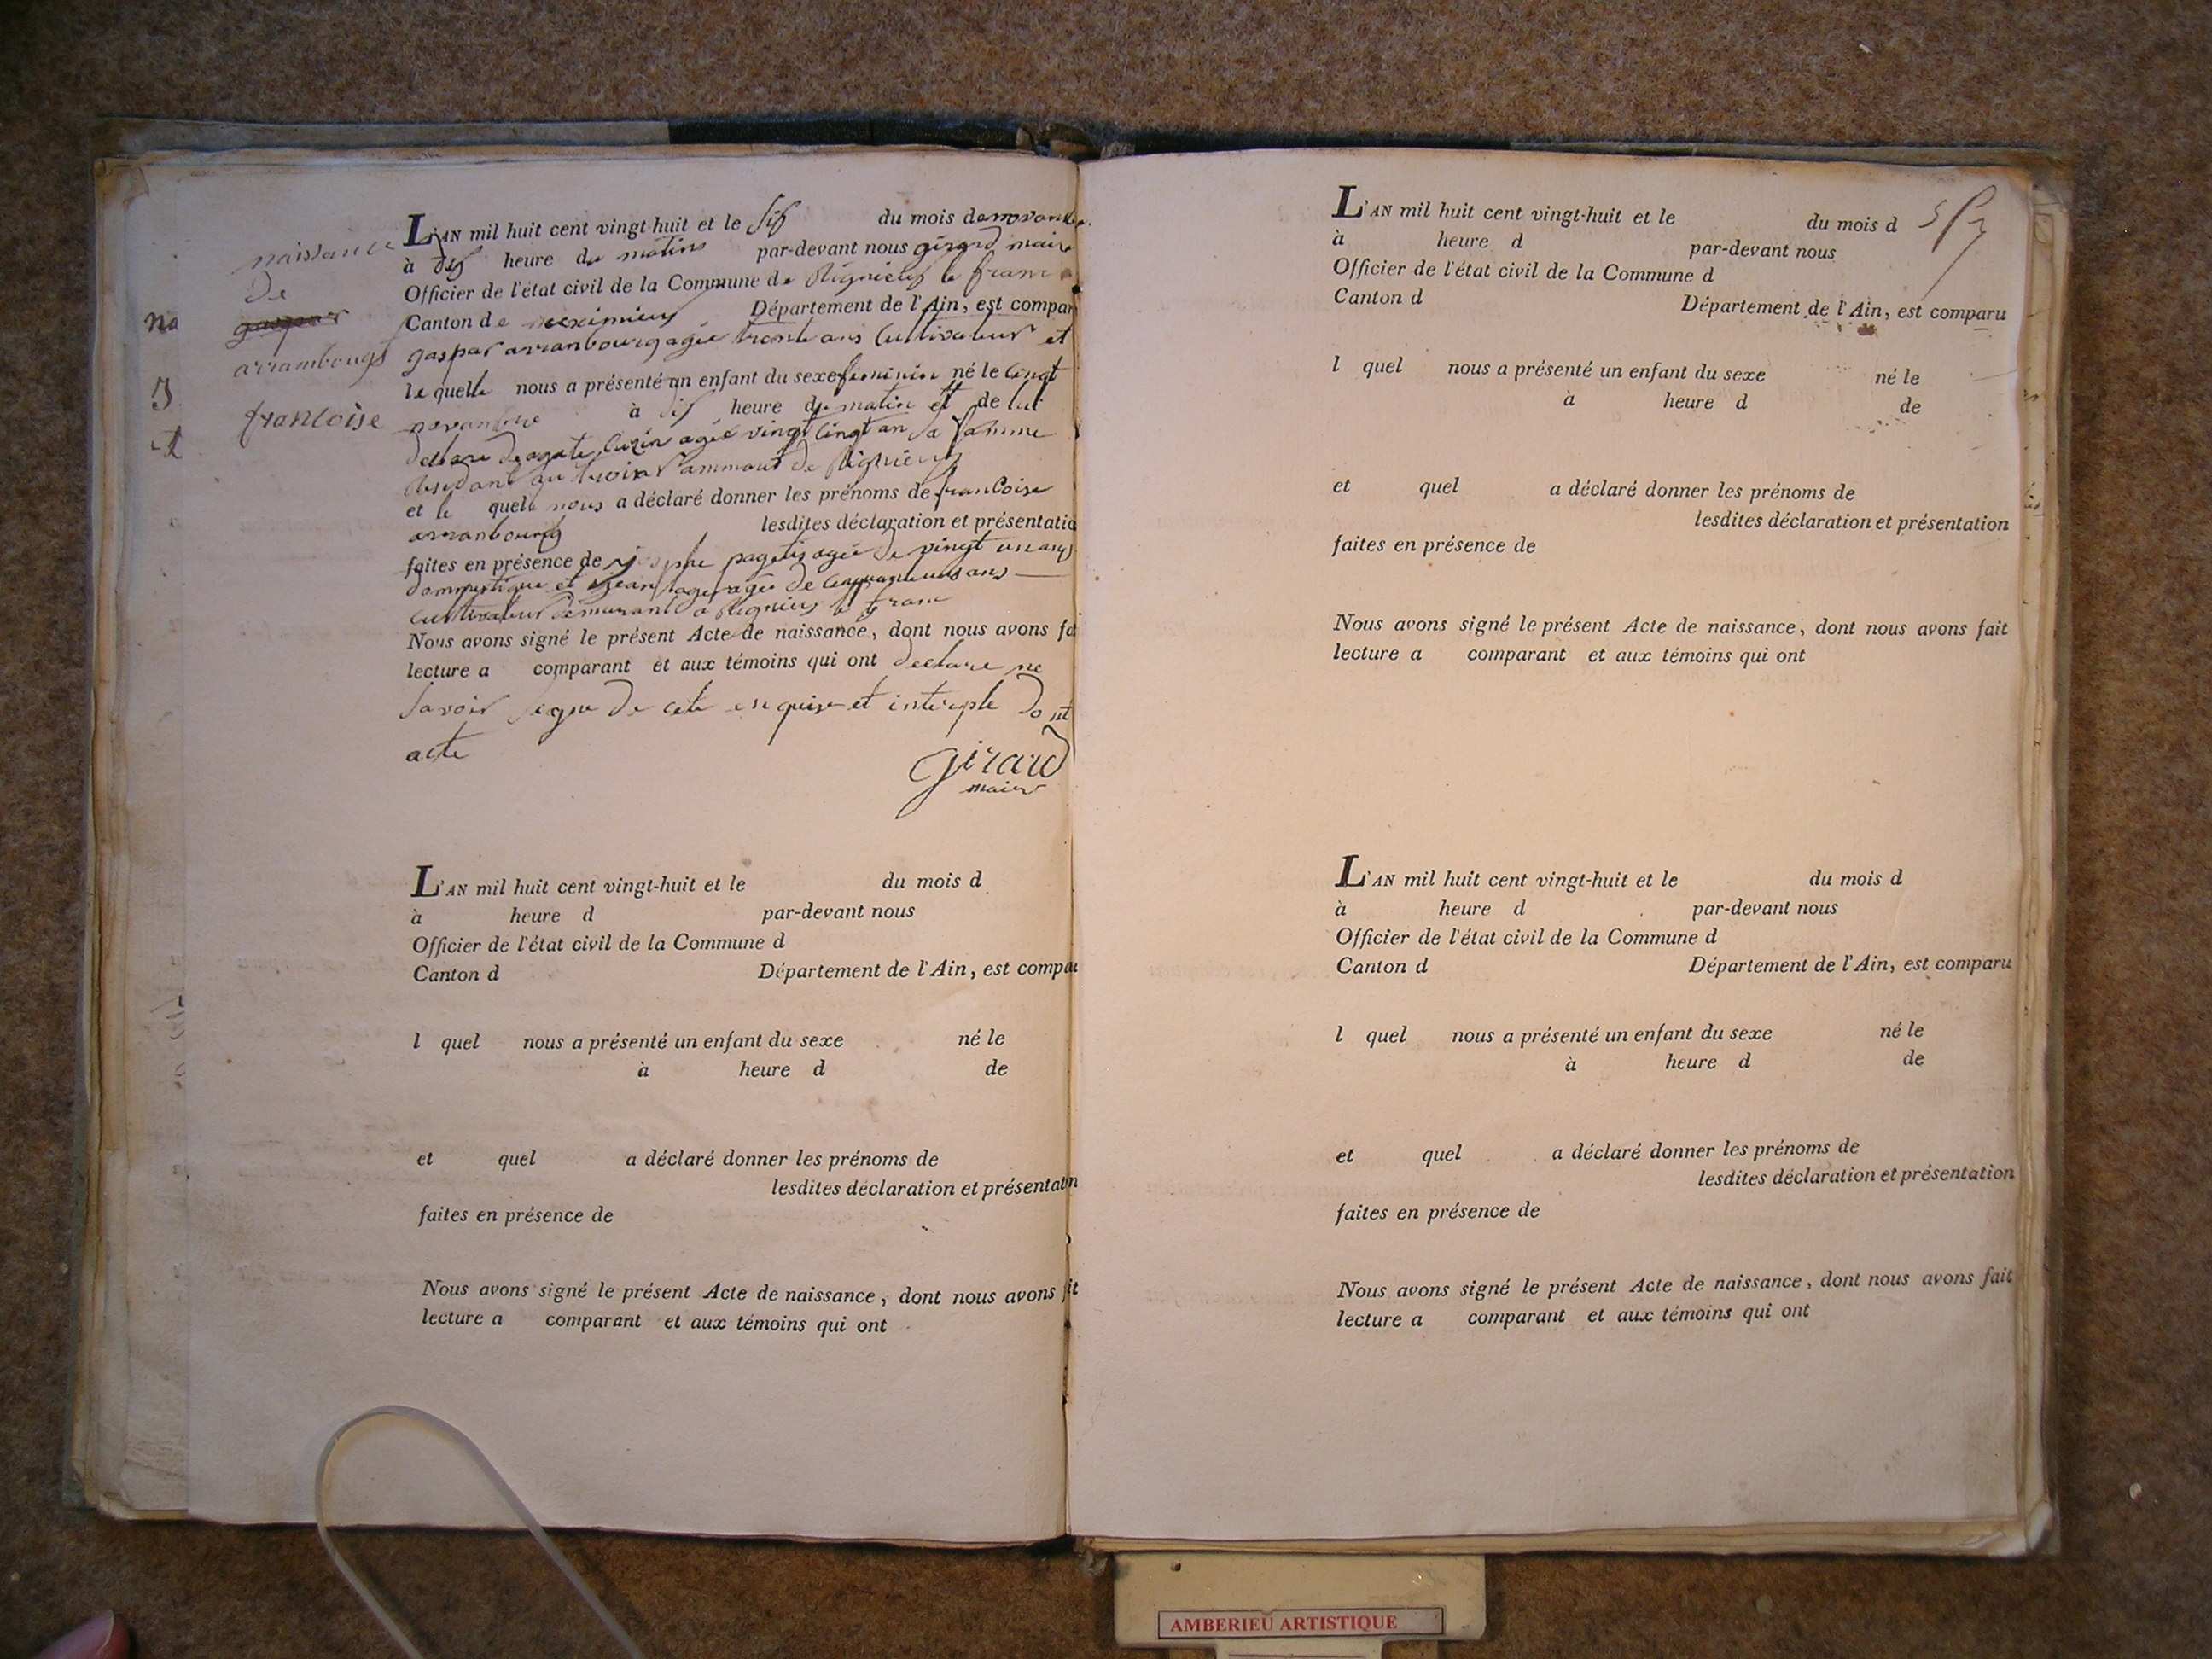 naissance
De
arrambourgt
françoise
na
et
L'AN mil huit cent vingt-huit et le six du mois de novambre.
à dix heure du matins par-devant nous girard maire
Officier de l'état civil de la Commune de Rignieux le franc
Canton de meximieux Département de l'Ain, est compar
gaspar arranbourg agée trente ans Cultivateur et
le quelle nous a présenté un enfant du sexe feminin né le Cingt
novambre à dix heure du matin et de lui
declare de agate agée vingt Cingt an sa famme
de Rignieux
et le quele nous a déclaré donner les prénoms de franCoise
arranbourg lesdites déclaration et présentatio
faites en présence de josephe agée de vingt un ans
dommestique et jean agée de ans
cultivateur demurant a Rignieux le franc
Nous avons signé le présent Acte de naissance, dont nous avons fa
lecture a comparant et aux témoins qui ont declare ne
savoir signe de cete enquise et interple dont
acte
girard
maire
L'AN mil huit cent vingt-huit et le du mois d
à heure d par-devant nous
Officier de l'état civil de la Commune d
Canton d Département de l'Ain, est compau
l quel nous a présenté un enfant du sexe né le
à heure d de
et quel a déclaré donner les prénoms de
lesdites déclaration et présentatin
faites en présence de
Nous avons signé le présent Acte de naissance, dont nous avons fit
lecture a comparant et aux témoins qui ont
L'AN mil huit cent vingt-huit et le du mois d
à heure d par-devant nous
Officier de l'état civil de la Commune d
Canton d Département de l'Ain, est comparu
l quel nous a présenté un enfant du sexe né le
à heure d de
et quel a déclaré donner les prénoms de
lesdites déclaration et présentation
faites en présence de
Nous avons signé le présent Acte de naissance, dont nous avons fait
lecture a comparant et aux témoins qui ont
L'AN mil huit cent vingt-huit et le du mois d
à heure d par-devant nous
Officier de l'état civil de la Commune d
Canton d Département de l'Ain, est comparu
l quel nous a présenté un enfant du sexe né le
à heure d de
et quel a déclaré donner les prénoms de
lesdites déclaration et présentation
faites en présence de
Nous avons signé le présent Acte de naissance, dont nous avons fait
lecture a comparant et aux témoins qui ont
AMBERIEU ARTISTIQUE